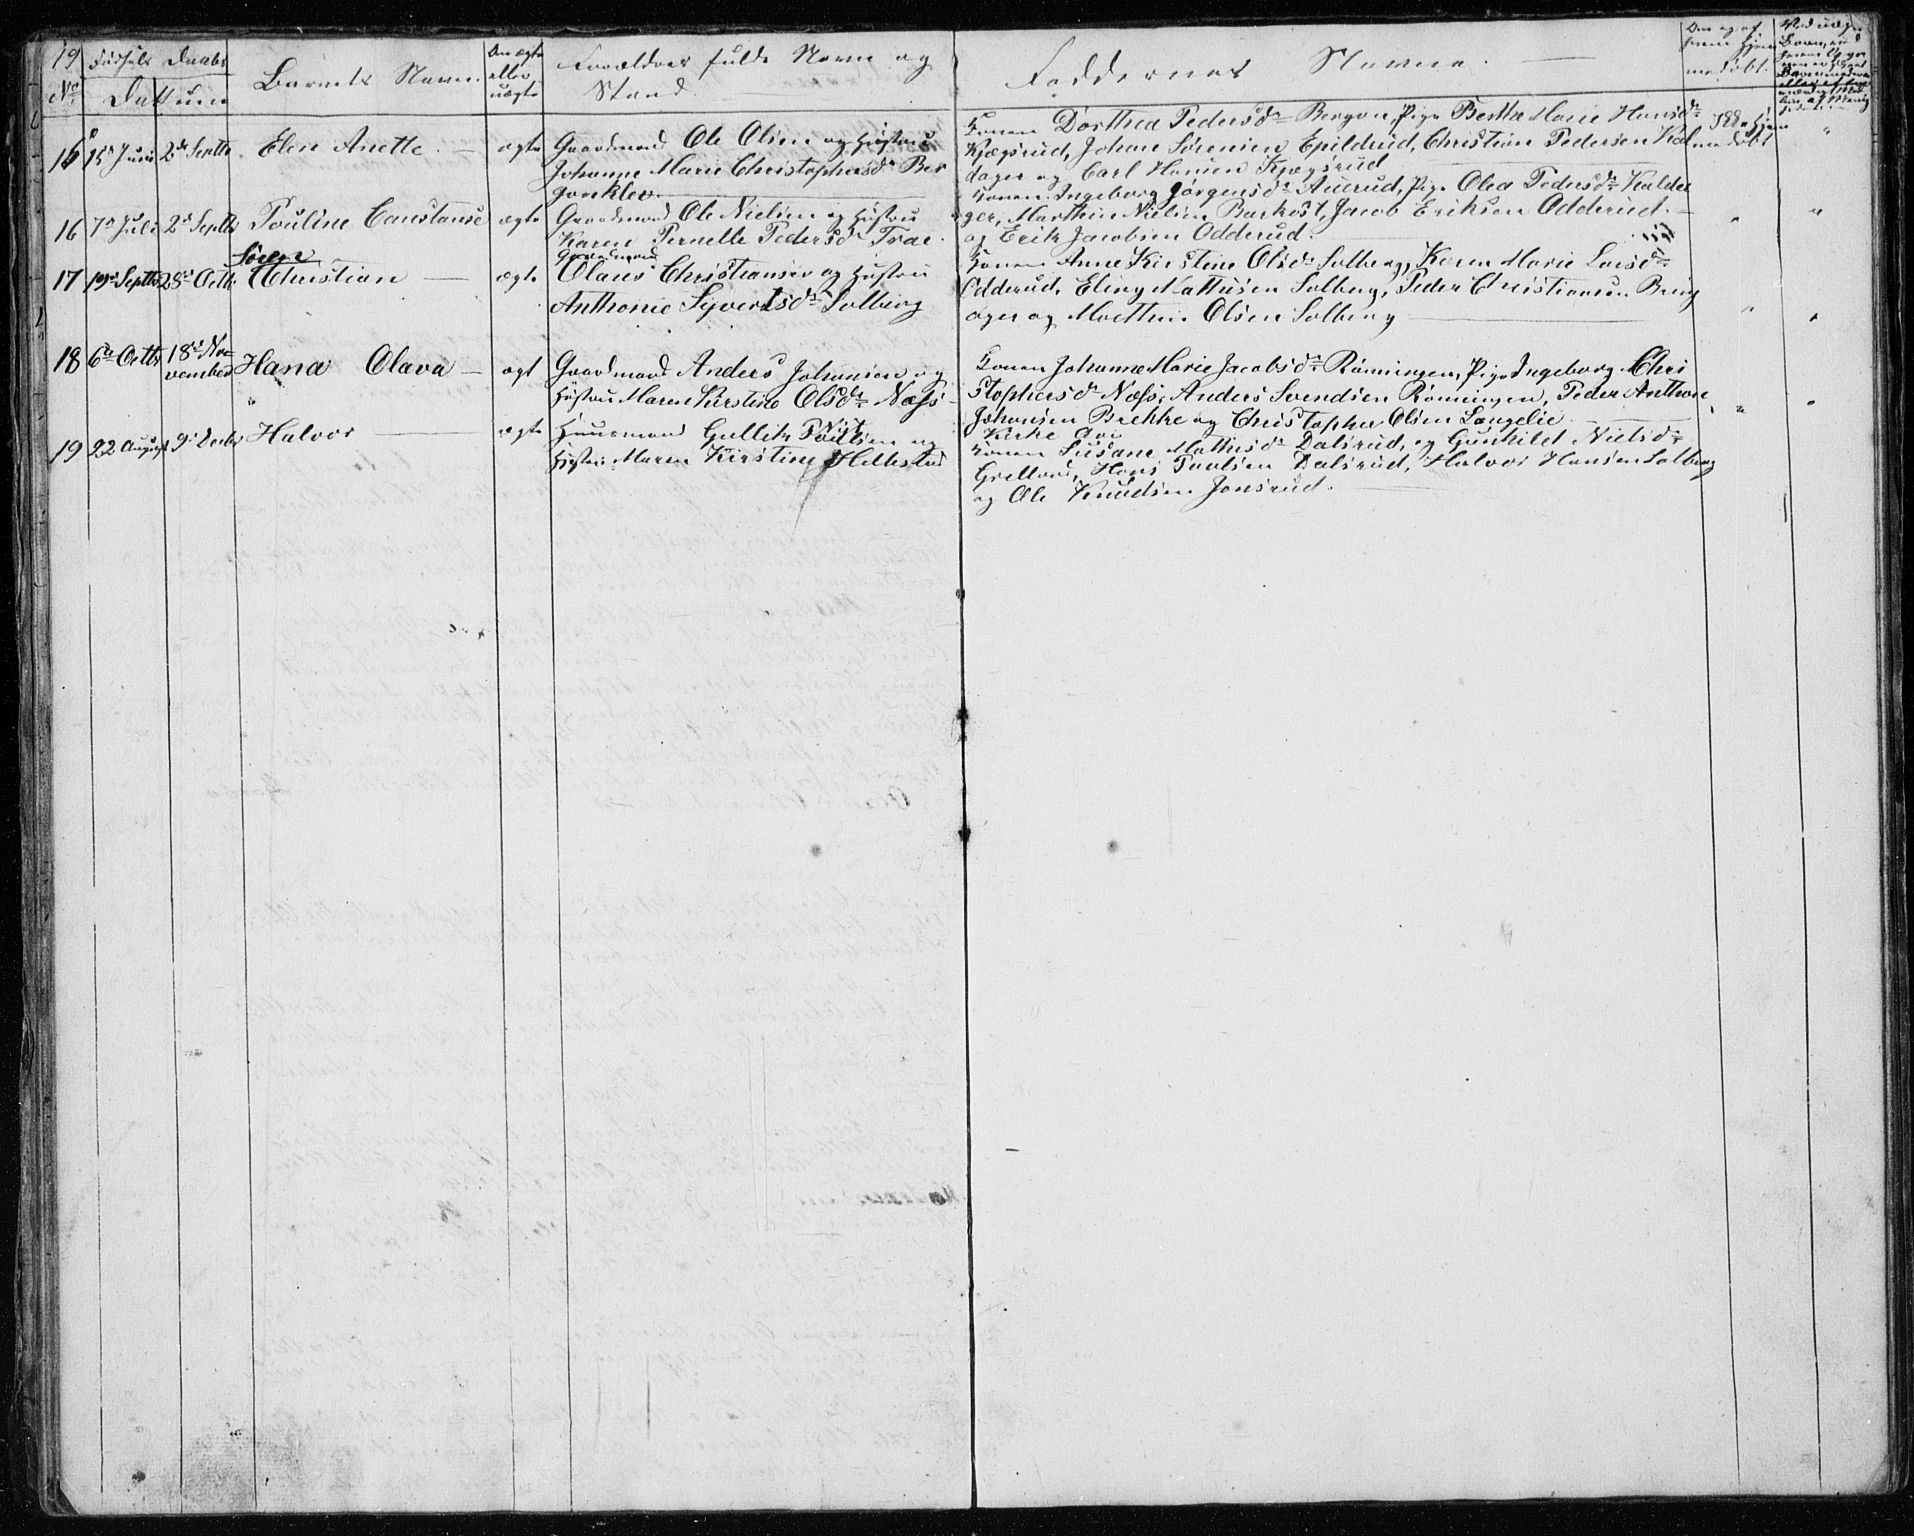 19 Fødsels Daabs
No Dattum
Barnets Navn
Om ægte
eller
uægte
Forældres fulde Navn og
Stand
Faddernes Navne.
16 15de Juni 2de Septbr Elen Anette. — ægte Gaardmand Ole Olsen og Hustru
Johanne Marie Christophersdr Ber
Konen Dorthea Pedersdr Bergon, Pige Berthe Marie Hansdr
Kjægsrud, Johan Sørensen Epildrud, Christian Pedersen Kal
dager og Carl Hansen Kjægsrud
hjem
me døbt
16 7de Juli 2de Septbr Pouline Constanse ægte Gaardmand Ole Nielsen og Hustru
Karen Pernelle Pedersdr Traae.
Konen Ingeborg Jørgensdr Aaerud, Pige Olea Pedersdr Kalda
ger, Marthin Nielsen Barkost, Jacob Eriksen Odderud. —
og Erik Jacobsen Odderud.
Søren
17 19de Septbr 28de Octbr Christian — ægte Gaardmand
Olaus Christiansen og Hustru
Anthonie Syvertsdr Solberg
Konen Anne Kirstine Olsdr Solberg, Karen Marie Larsdr
Odderud, Eling Mathisen Solberg, Peder Christiansen Bring
ager og Marthin Olsen Solberg
18 6te Octbr 18de No
vember Hana Olava — ægt Gaardmand Anders Johansen og
Hustru Maren Kirstine Olsdr Næss
Konen Johanne Marie Jacobsdr Rønningen, Pige Ingeborg Chri
stophersdr Næss, Anders Svendsen Rønningen, Peder Anthon
Johansen Brekke og Christopher Olsen Langelie
19 22 August 9de Decbr Halvor — ægte Huusmand Gullik Poulsen og
Hustru Maren Kirstine Hillestad
Konen Susane Mathisdr Dalsrud, og Gunhild Nielsdr
Grelland, Hans Paulsen Dalsrud, Halvor Hansen Solberg
og Ole Knudsen Jonsrud.